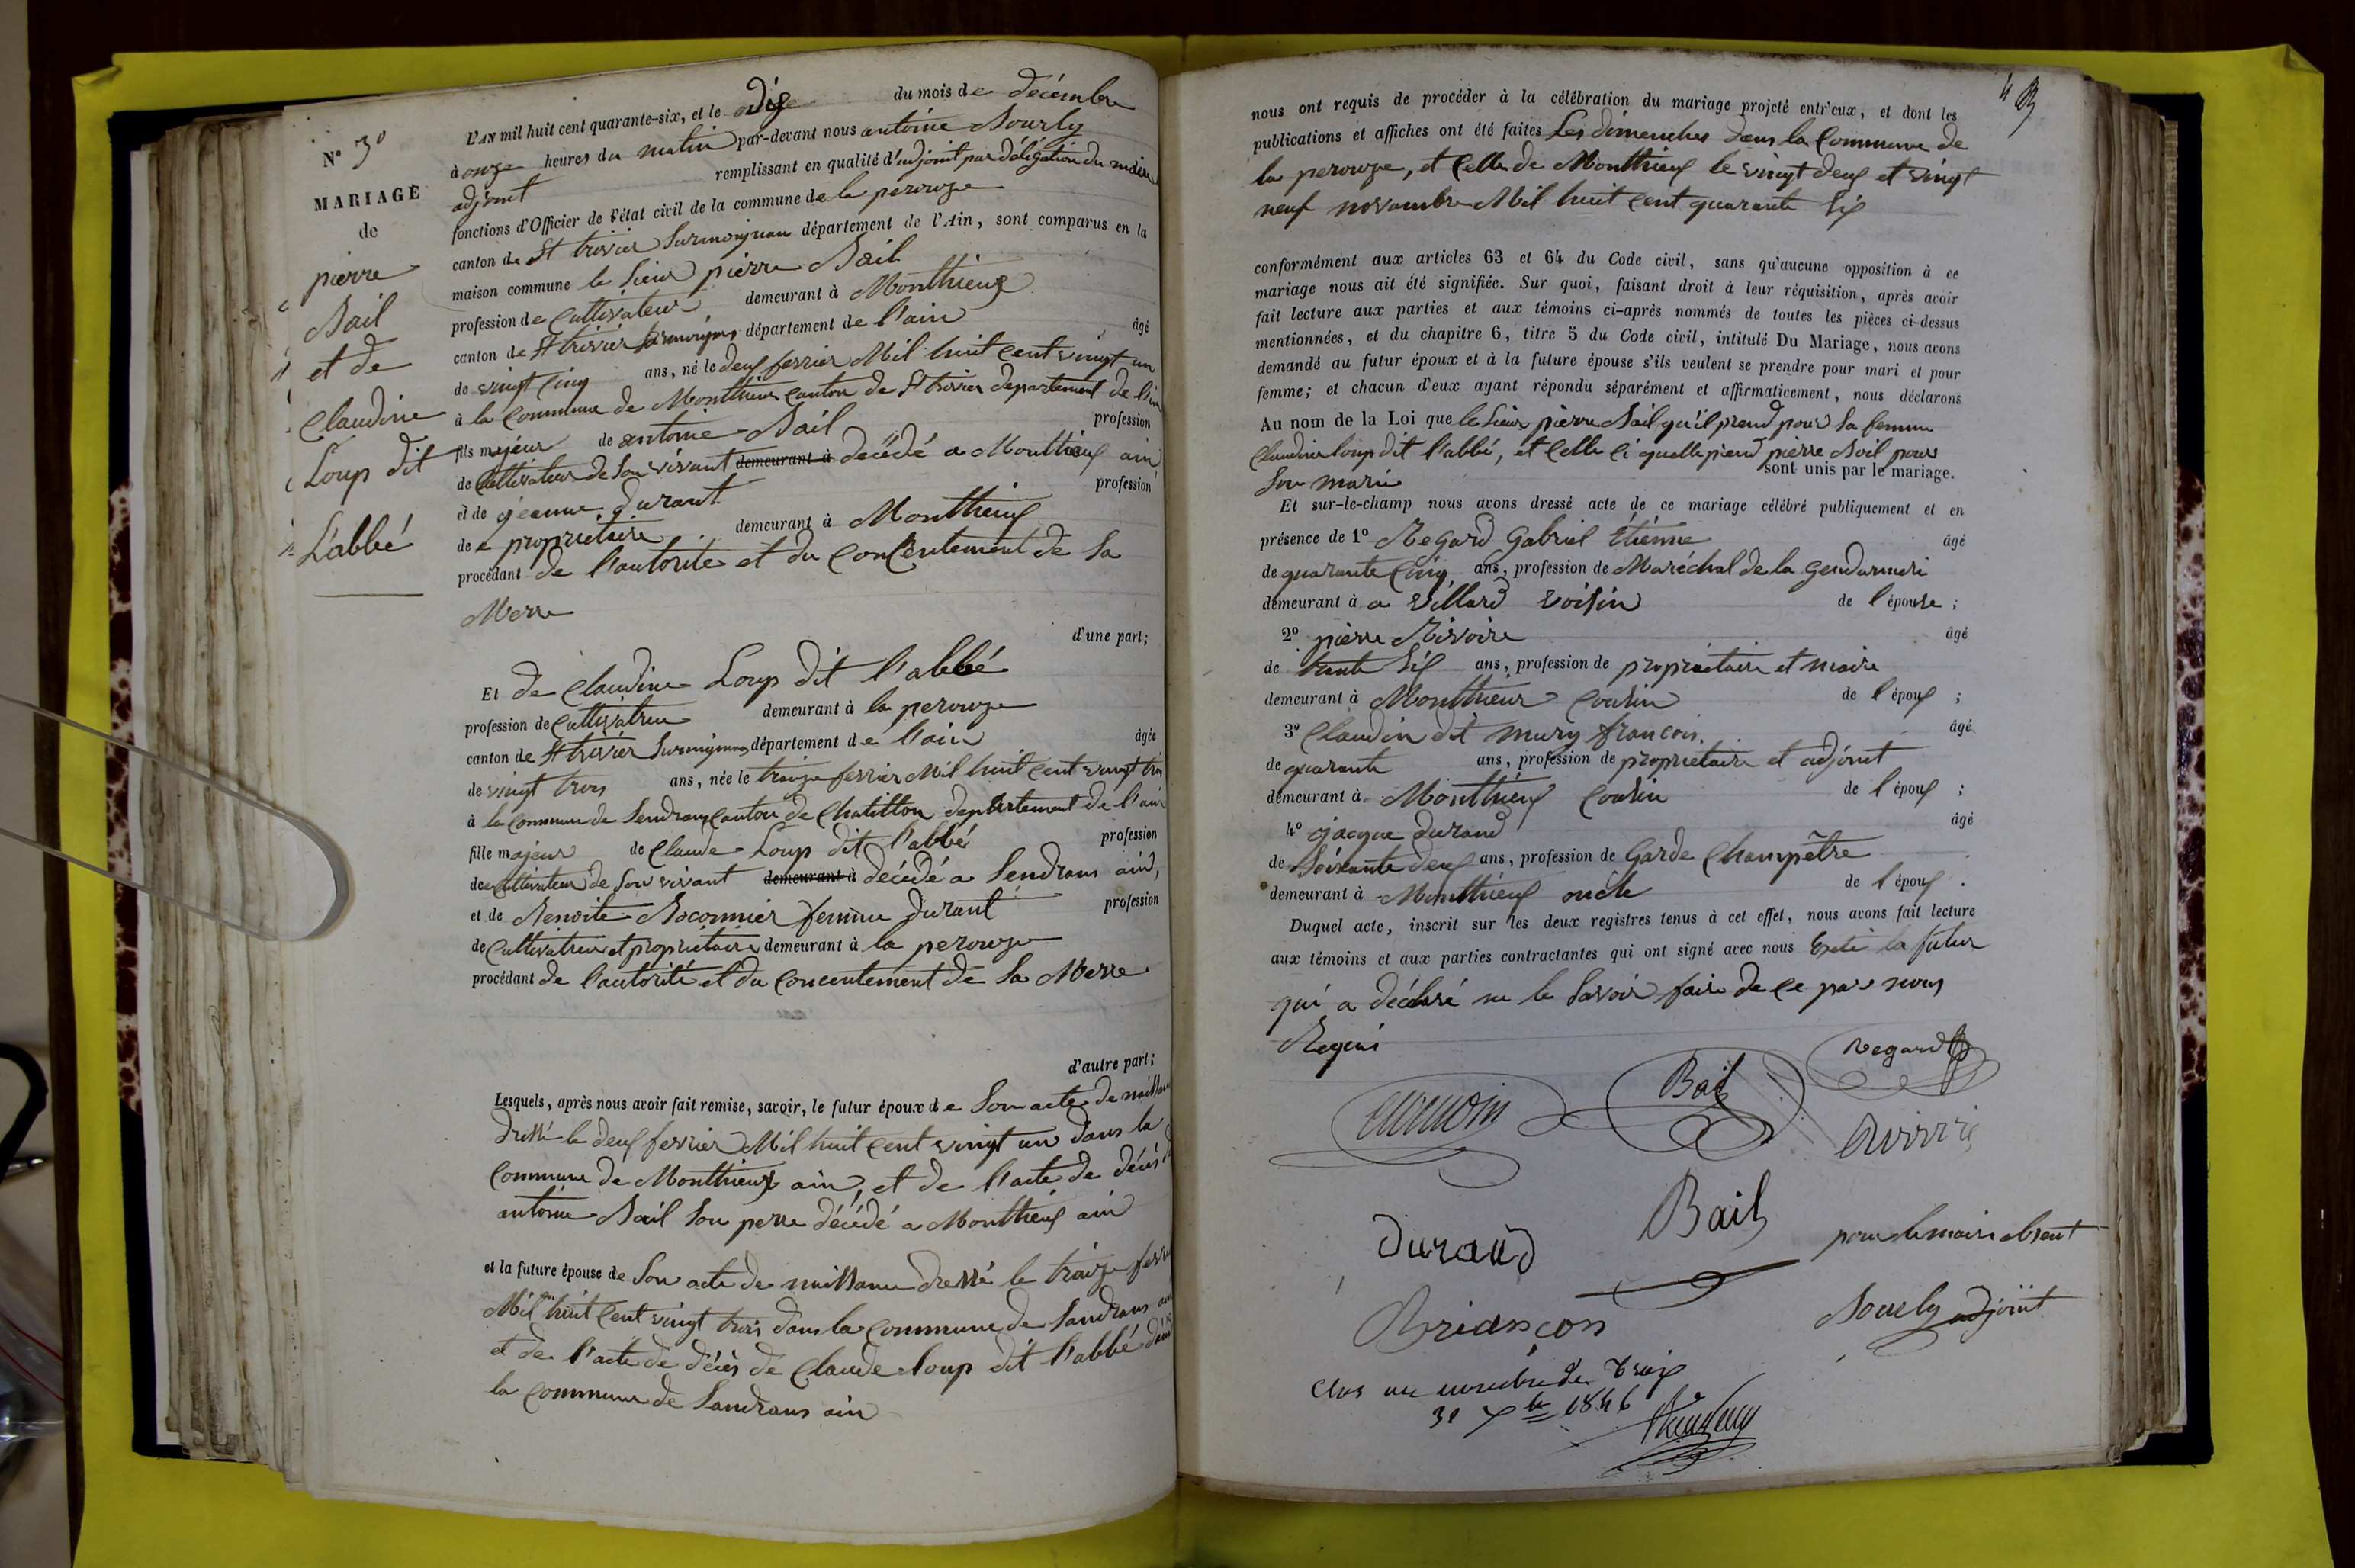 N° 3°
MARIAGE
de
pierre
Bail
et de
Claudine
Loup dit
L'abbé
L'AN mil huit cent quarante-six, et le du mois de décembre
à onze heures du matin par-devant nous antoine Sourly
adjoint remplissant en qualité d'adjoint par délégation du maire
fonctions d'Officier de l'état civil de la commune de la perouze
canton de St trivier Surmoignan département de l'Ain, sont comparus en la
maison commune le Sieur pierre Bail
profession de Cultivateur demeurant à Monthieux
canton de St trivier département de l'ain âgé
de vingt Cinq ans, né le deux fevrier Mil huit Cent vingt un
à la Commune de Monthieux Canton de St trivier departement de l'ain
fils majeur de antoine Bail profession
de Cultivateur de Son vivant demeurant à décédé a Monthieux ain
et de jeanne durant profession
de propriétaire demeurant à Monthieux
procédant de l'autorité et du Concentement de Sa
Merre
d'une part;
Et de Claudine Loup dit l'abbé
profession de Cultivatrice demeurant à la perouze
canton de St trivier département de l'ain âgée
de vingt trois ans, née le traize fevrier Mil huit Cent vingt trois
à la Commune de Sendrans Canton de Chatillon departement de l'ain
fille majeur de Claude Loup dit l'abbé profession
de Cultivateur de Son vivant demeurant à décédé a Sendrans ain,
et de Benoite femme durant profession
de Cultivatrice et propriétaire demeurant à la perouze
procédant de l'autorité et du Concentement de Sa Merre
d'autre part;
Lesquels, après nous avoir fait remise, savoir, le futur époux de Son acte de naissance
dressé le deux fevrier Mil huit Cent vingt un dans la
Commune de Monthieux ain, et de l'acte de décès
antoine Bail Son perre décédé a Monthieux ain
et la future épouse de Son acte de naissance dressé le traize
Mil huit Cent vingt trois dans la Commune de Sandrans
et de l'acte de décès de Claude loup dit l'abbé
la Commune de Sandrans ain
nous ont requis de procéder à la célébration du mariage projeté entr'eux, et dont les
publications et affiches ont été faites Les dimenches dans la Commune de
la perouze, et Celle de Monthieux le vingt deux et vingt
neuf novembre Mil huit Cent quarante Six
conformément aux articles 63 et 64 du Code civil, sans qu'aucune opposition à ce
mariage nous ait été signifiée. Sur quoi, faisant droit à leur réquisition, après avoir
fait lecture aux parties et aux témoins ci-après nommés de toutes les pièces ci-dessus
mentionnées, et du chapitre 6, titre 5 du Code civil, intitulé Du Mariage, nous avons
demandé au futur époux et à la future épouse s'ils veulent se prendre pour mari et pour
femme; et chacun d'eux ayant répondu séparément et affirmaticement, nous déclarons
Au nom de la Loi que le Sieur pierre Bail qu'il prend pour Sa femme
Claudine loup dit l'abbé, et Celle Ci quelle prend pierre Bail pour
Son marie sont unis par le mariage.
Et sur-le-champ nous avons dressé acte de ce mariage célébré publiquement et en
présence de 1° Regard Gabriel Etienne âgé
de quarante Cinq ans, profession de Maréchal de la gendarmeri
demeurant à a Villard voisin de l'épouse;
2° pierre Rivoire âgé
de trente Six ans, profession de propriétaire et maire
demeurant à Monthieux Cousin de l'époux;
3° Claudin dit mury francois. âgé
de quarante ans, profession de propriétaire et adjoint
demeurant à Monthieux Cousin de l'époux;
4° jacque durand âgé
de Soixante deux ans, profession de Garde Champêtre
demeurant à Monthieux oncle de l'époux.
Duquel acte, inscrit sur les deux registres tenus à cet effet, nous avons fait lecture
aux témoins et aux parties contractantes qui ont signé avec nous la futur
qui a déclaré ne le Savoir faire de Ce par nous
Requis
Bail
Regard
durand
Bail
pour le maire absent
Briançon
Sourly adjoint
Clos au nombre de Trois
31 Xbre 1846